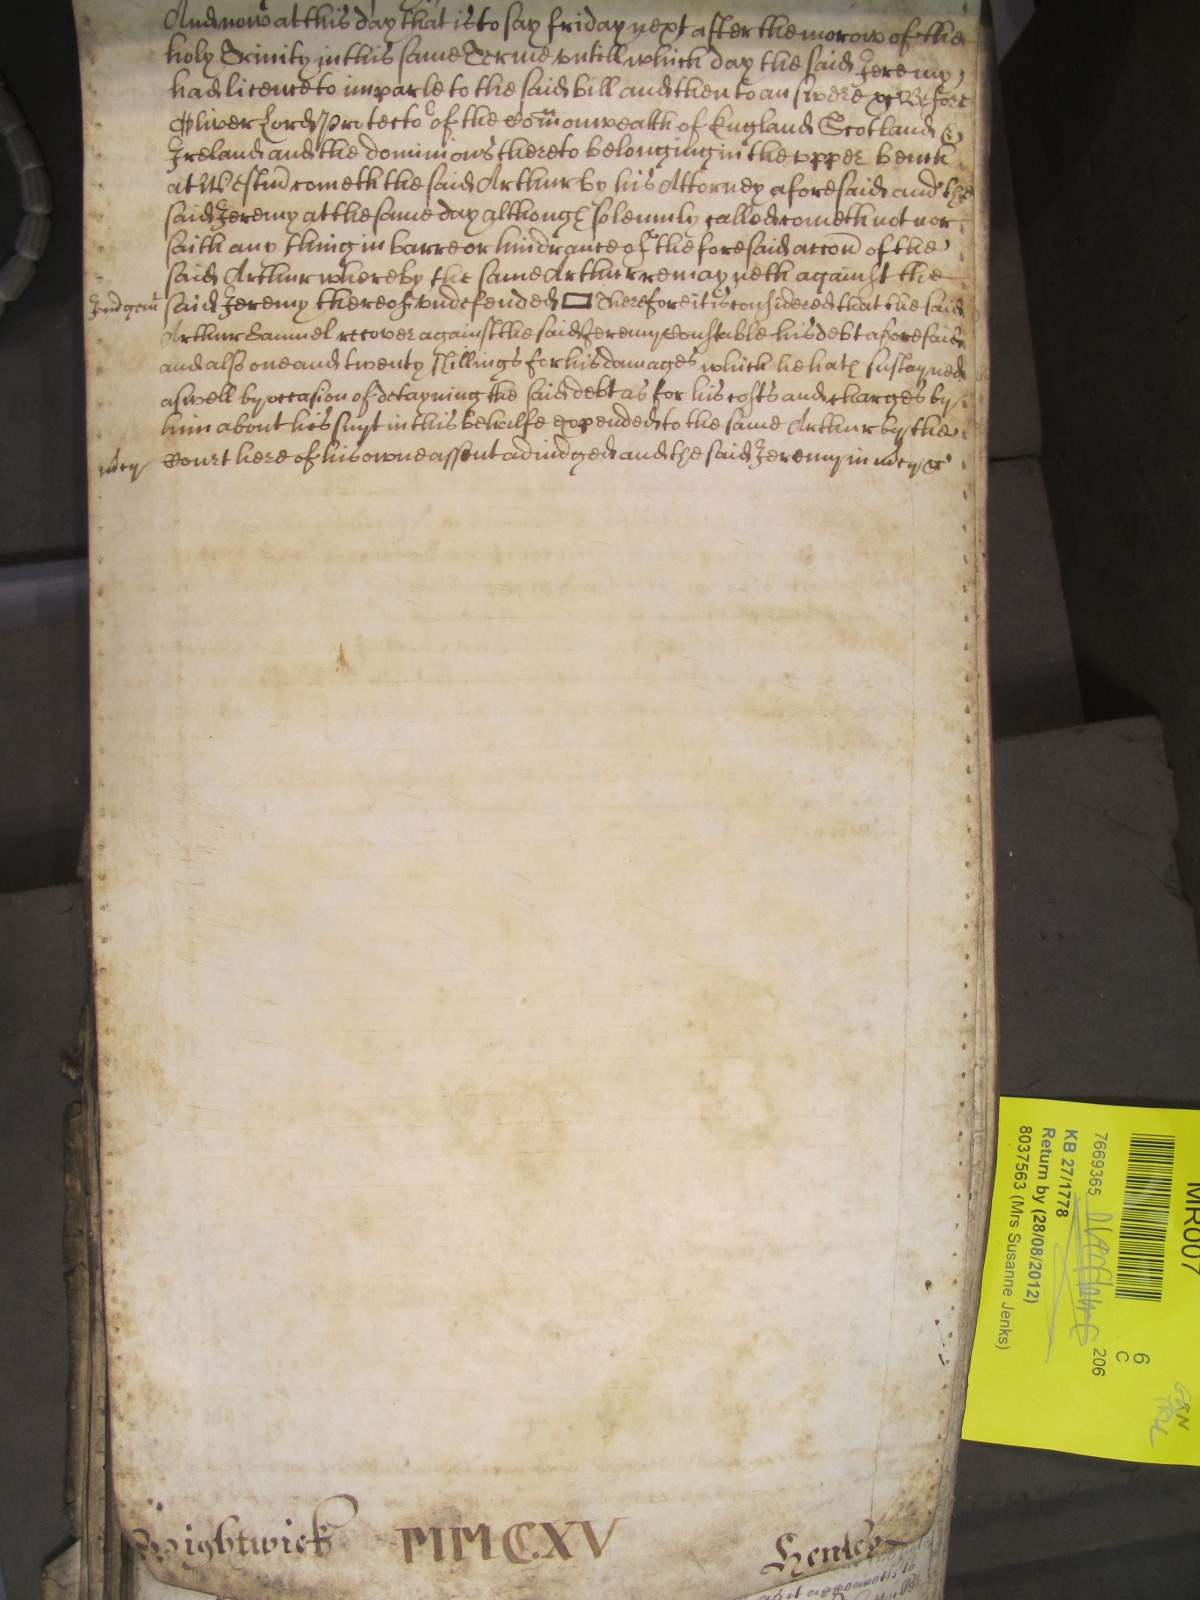 And now at this day that is to say friday next after the morow of the
holy Trinity in this same Terme untill which day the said Jeremy
had licence to imparle to the said bill and then to answere &c Before
Oliver Lord Protector of the Comonwealth of England Scotland &
Ireland and the dominions thereto belonging in the upper bench
at Westm cometh the said Arthur by his Attorney aforesaid and the
said Jeremy at the same day although solemnly called cometh not nor
saith any thing in barre or hindrance of the foresaid accon of the
said Arthur whereby the same Arthur remayneth against the
Judgemt said Jeremy thereof undefended Therefore it is considered that the said
Arthur Samuel recover against the said Jeremy Constable his debt aforesaid
and also one and twenty shillings for his damages which he hath sustayned
aswell by occasion of detayning the said debt as for his costs and charges by
him about his suyt in this behalfe expended to the same Arthur by the
mcy Court here of his owne assent adiudged and the said Jeremy in mcy &c
Wightwick MMCXV Henley
MR007
7669365
206
6
C
KB 27/1778
Return by (28/08/2012)
8037563 (Mrs Susanne Jenks)